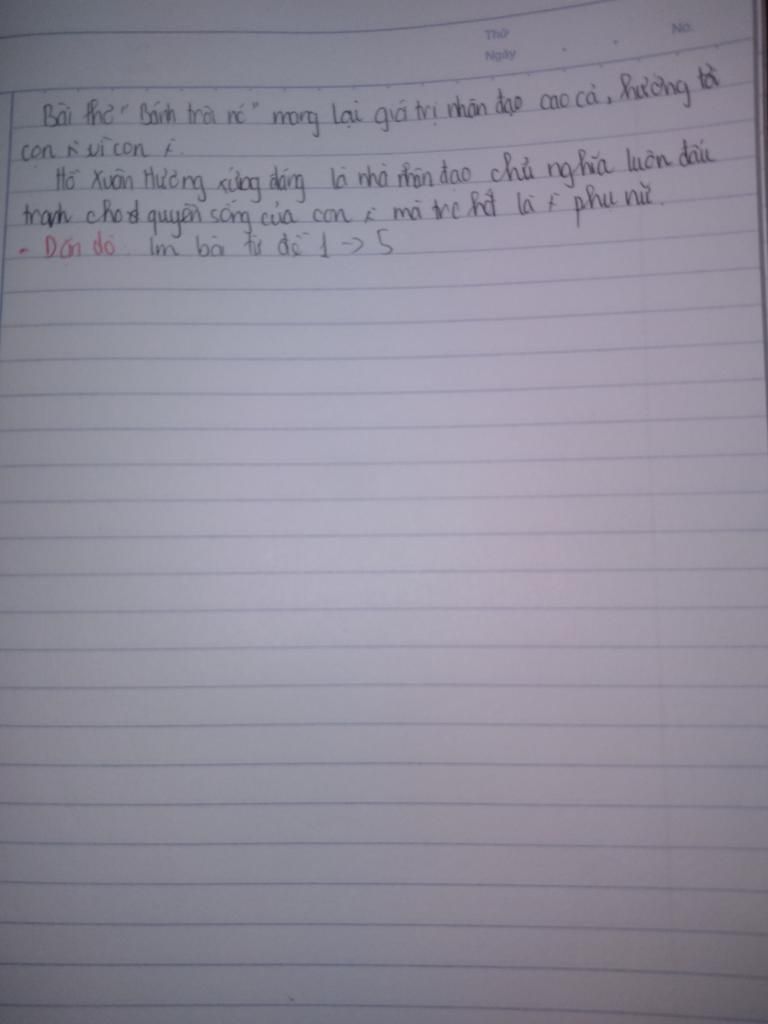 Thứ
No.
Ngày
Bài thơ "Bánh trôi nc" mang lại giá trị nhân đạo cao cả, hướng tới
con ң vì con ң.
Hồ Xuân Hương xứng đáng là nhà nhân đạo chủ nghĩa luôn đấu
tranh cho quyền sống của con ң mà trc hết là ң phụ nữ.
- Dặn dò: làm bài từ đề 1 -> 5